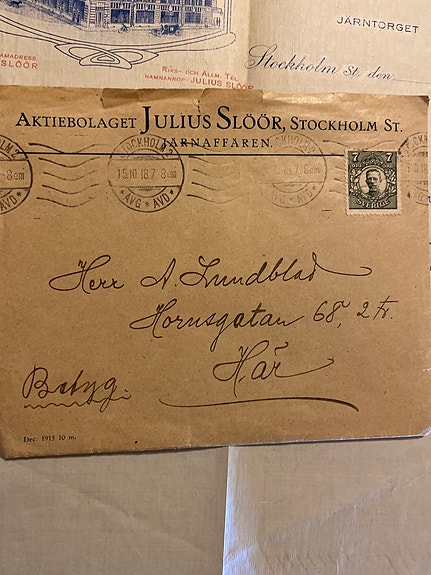 JÄRNTORGET
SLÖÖR
RIKS- OCH ALLM. TEL.
NAMNANROP: JULIUS SLÖÖR
Stockholm St. den
AKTIEBOLAGET JULIUS SLÖÖR, STOCKHOLM ST.
JÄRNAFFÄREN.
STOCKHOLM 2
15.10.18.7. 8 em
*AVG * AVD*
7 7
SVERIGE
Herr A. Lundblad
Hornsgatan 68, 2 tr.
Här
Betyg.
Dec. 1915 10 m.